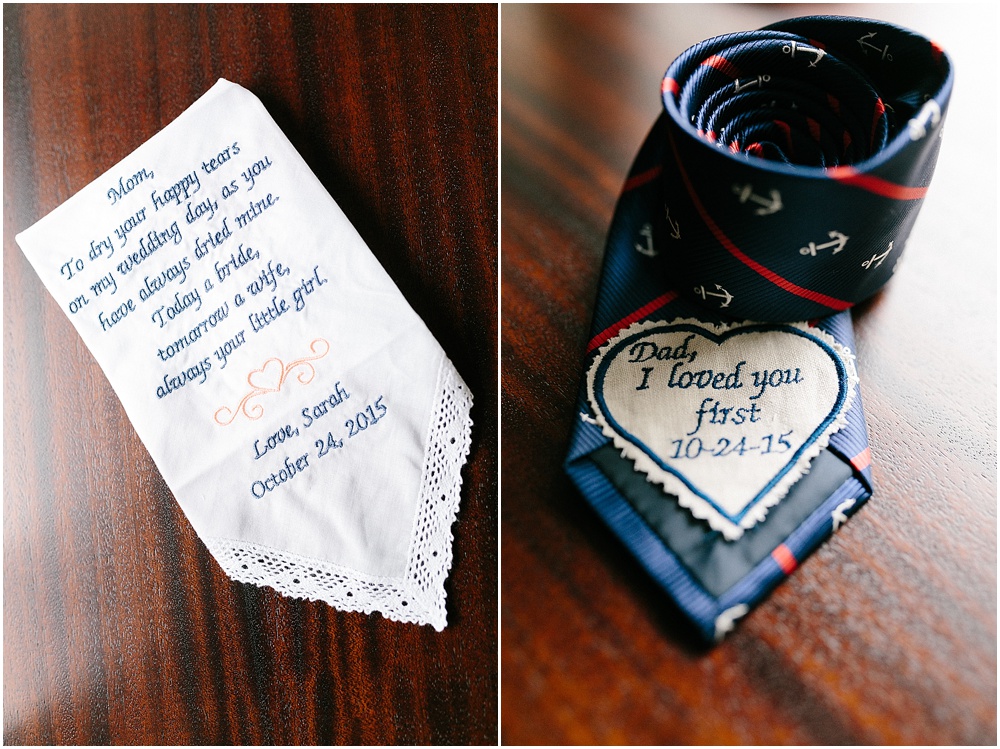 Mom,
To dry your happy tears
on my wedding day, as you
have always dried mine.
Today a bride,
tomorrow a wife,
always your little girl.
Love, Sarah
October 24, 2015
Dad,
I loved you
first
10-24-15